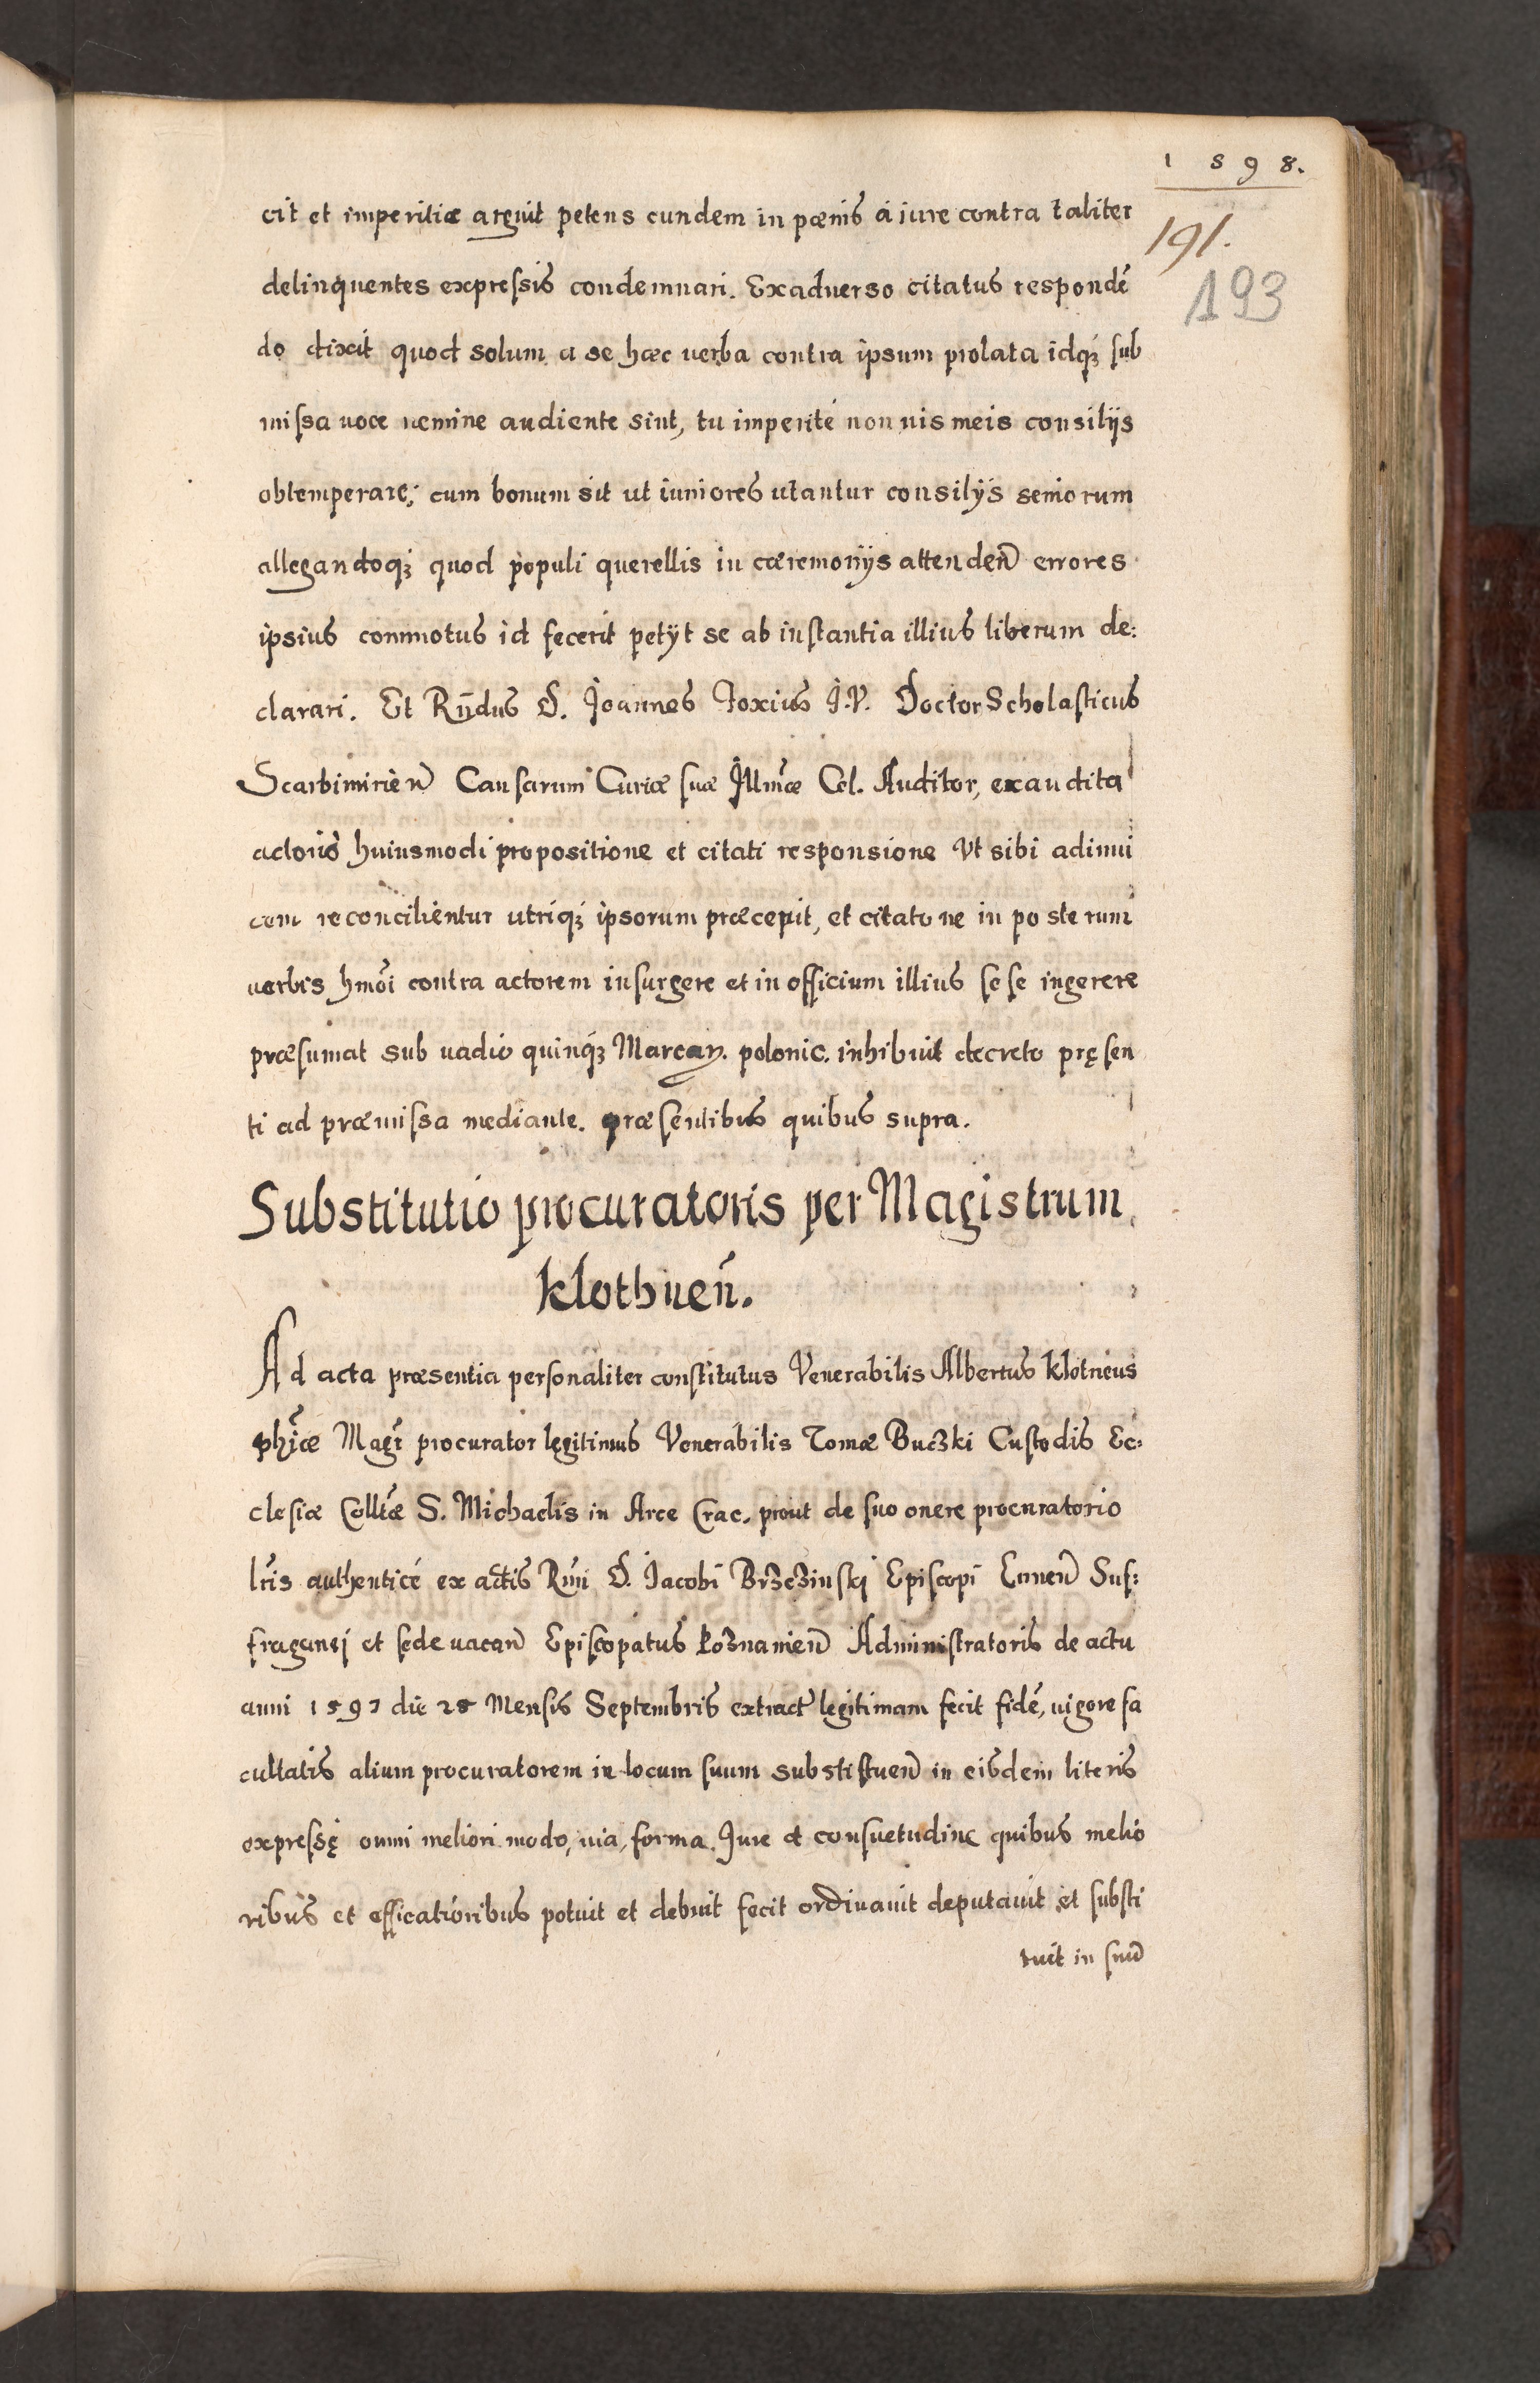 1598.
191.
193
cit et imperitiæ arguit petens eundem in pœnis á iure contra taliter
delinquentes expressis condemnari. Exaduerso citatus respondē
do dixit quod solum a se hæc uerba contra ipsum prolata idq₃ sub
missa uoce nemine audiente sint, tu imperité non uis meis consilijs
obtemperare, cum bonum sit ut iuniores utantur consilijs seniorum
allegandoq₃ quod populi querellis in cæremonijs attendeñ errores
ipsius commotus id fecerit petijt se ab instantia illius liberum de:
clarari. Et Rñdus D. Joannes Foxius J.V. Doctor Scholasticus
Scarbimirieñ Causarum Curiæ suæ Illmæ Cel. Auditor, exaudita
actoris huiusmodi propositione et citati responsione Vt sibi adinui
cem reconcilientur utriq₃ ipsorum præcepit, et citato ne in posterum
uerbis hmōi contra actorem insurgere et in officium illius sese ingerere
præsumat sub uadio quinq₃ Marcar. polonic. inhibuit decreto pręsen
ti ad præmissa mediante. præsentibus quibus supra.
Substitutio procuratoris per Magistrum
Klothueñ.
Ad acta præsentia personaliter constitutus Venerabilis Albertus Klotneus
phiæ Magr̃ procurator legitimus Venerabilis Tomæ Buczki Custodis Ec:
clesiæ Colltæ S. Michaelis in Arce Crac. prout de suo onere procuratorio
lr̃is authenticé ex actis Rmi D. Jacobi Brzezinski Episcopi Enneñ Suf:
fraganej et sede uacañ Episcopatus Poznanieñ Administratoris de actu
anni 1597 die 25 Mensis Septembris extract̃ legitimam fecit fidē, uigore fa
cultatis alium procuratorem in locum suum substituеñ in eisdem literis
expressę omni meliori modo, uia, forma. Jure et consuetudine quibus melio
ribus et efficatioribus potuit et debuit fecit ordinauit deputauit et substi
tuit in suū